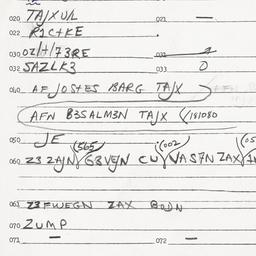 020 TAJXU/L 021 —
022 R1C+KE .
030 OZ/+/73RE 031
032 SAZLK3 033 0
040 AF JOSTES BARG TAJX
AFN B3SALM3N TAJX 181080
050 JE
060 Z3 ZAJN (565) G3VEJN CU (002) VAS7N ZAX
061 Z3FWEGN ZAX BODN
070 ZUMP
071 — 072 —